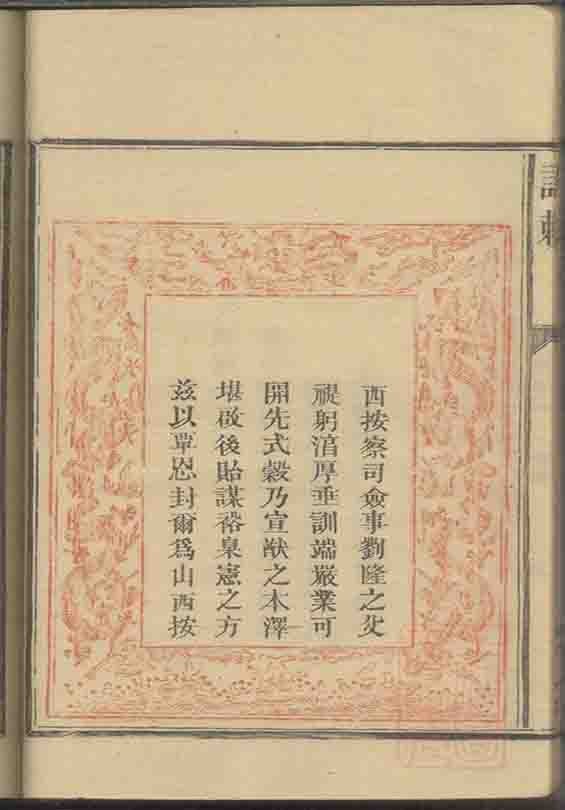 西按察司僉事劉隆之父
禔躬湻厚垂訓端嚴業可
開先式穀乃宣猷之本澤
堪啟後貽謀裕臬憲之方
茲以覃恩封爾爲山西按